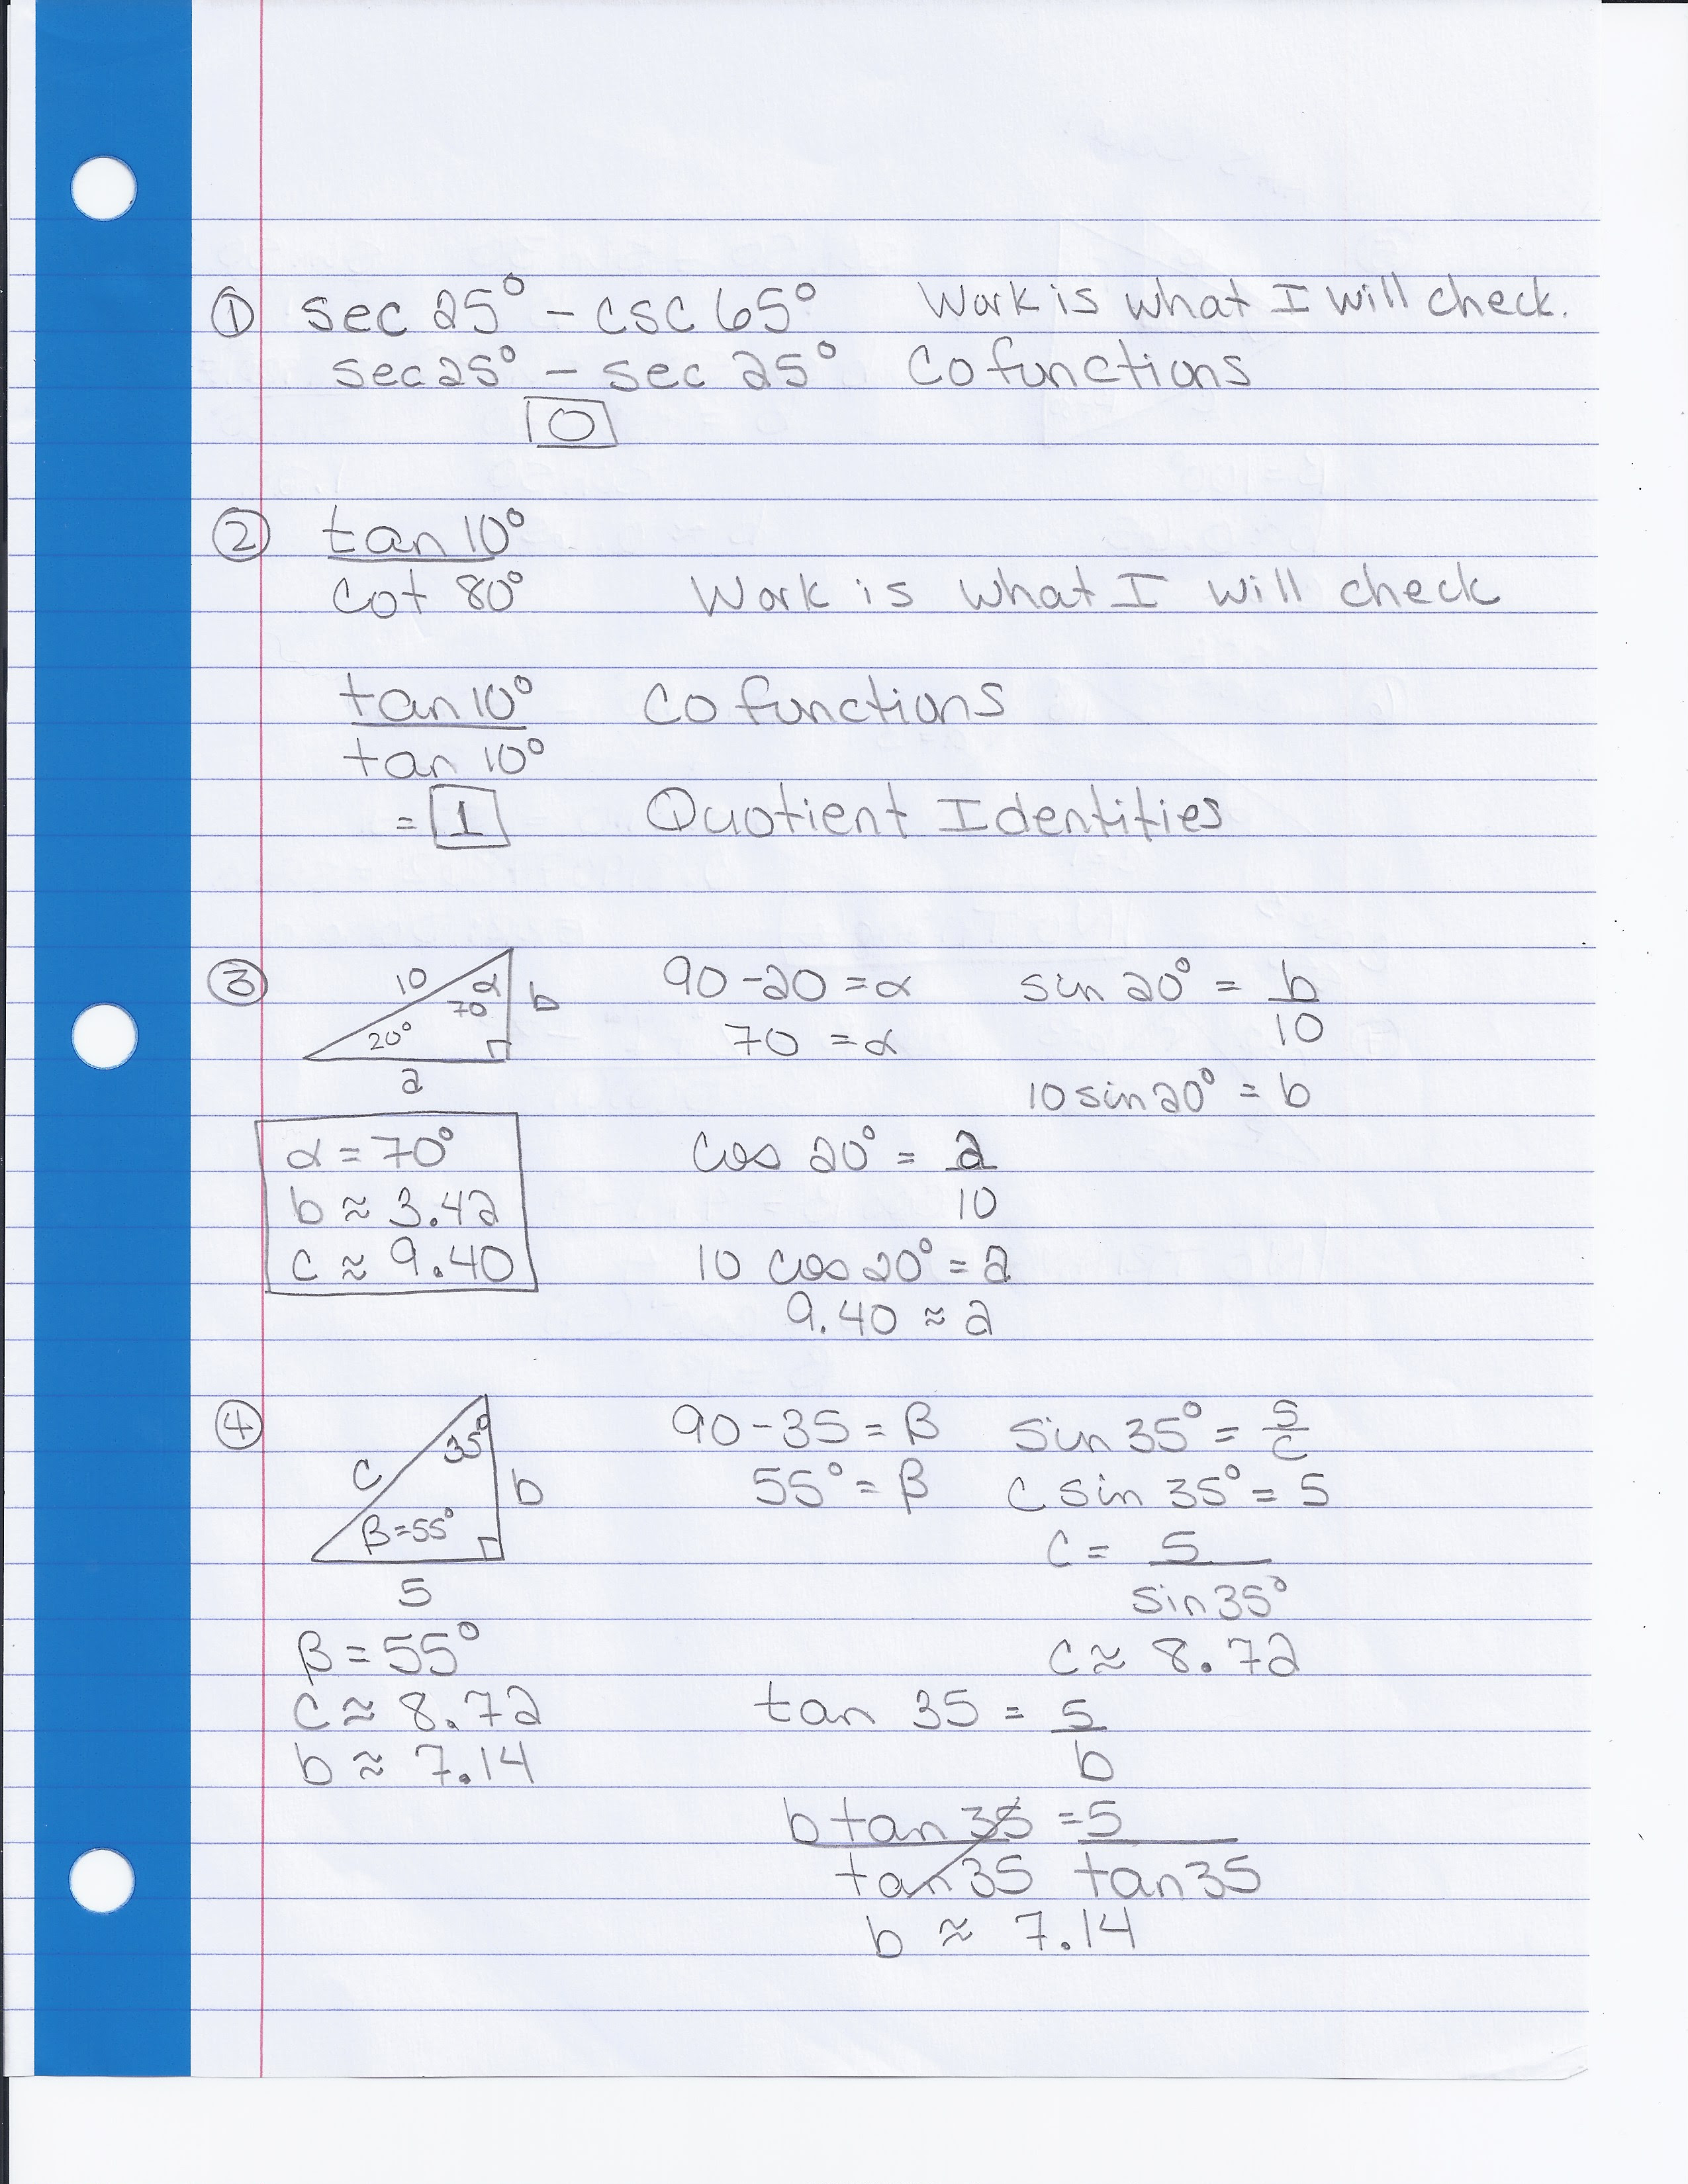 ① sec 25° - csc 65° Work is what I will check.
sec 25° - sec 25° Cofunctions
0
② tan 10°
cot 80° Work is what I will check
tan 10° Cofunctions
tan 10°
= 1 Quotient Identities
③ 10 α 70° b 20° a
90-20 = α
70 = α
sin 20° = b/10
10 sin 20° = b
α = 70°
b ≈ 3.42
c ≈ 9.40
cos 20° = a/10
10 cos 20° = a
9.40 ≈ a
④ c 35° b β=55° 5
90-35 = β
55° = β
sin 35° = 5/c
c sin 35° = 5
c = 5/sin 35°
c ≈ 8.72
β = 55°
c ≈ 8.72
b ≈ 7.14
tan 35 = 5/b
b tan 35 = 5
tan 35 tan 35
b ≈ 7.14